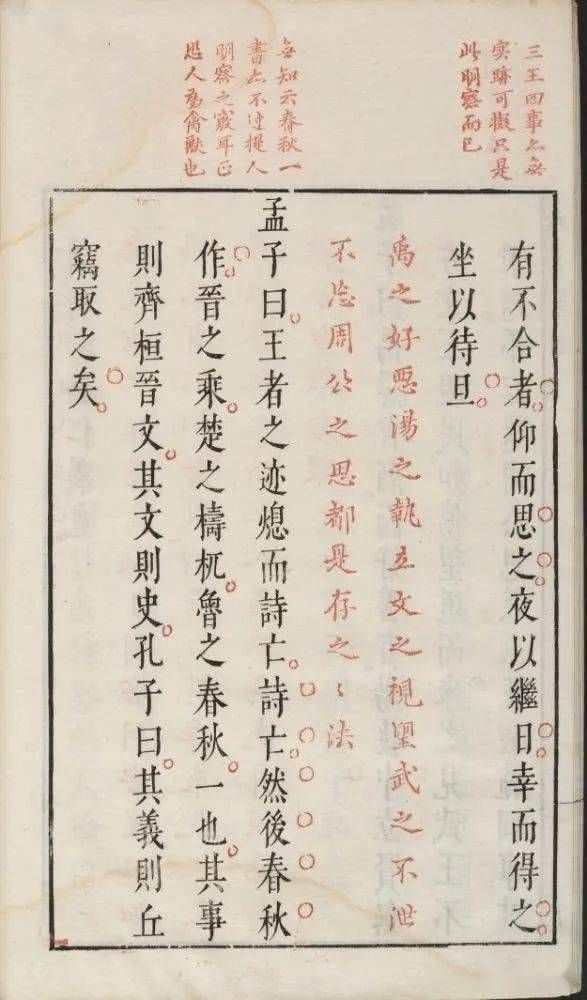 三王四事亦無
實跡可擬只是
此明察而已
無知云春秋一
書亦不过提人
明察之竅耳正
恐人為禽獸也
有不合者仰而思之夜以繼日幸而得之
坐以待旦
禹之好惡湯之執立文之視望武之不泄
不忘周公之思都是存之〻法
孟子曰王者之迹熄而詩亡詩亡然後春秋
作晉之乘楚之檮杌魯之春秋一也其事
則齊桓晉文其文則史孔子曰其義則丘
竊取之矣